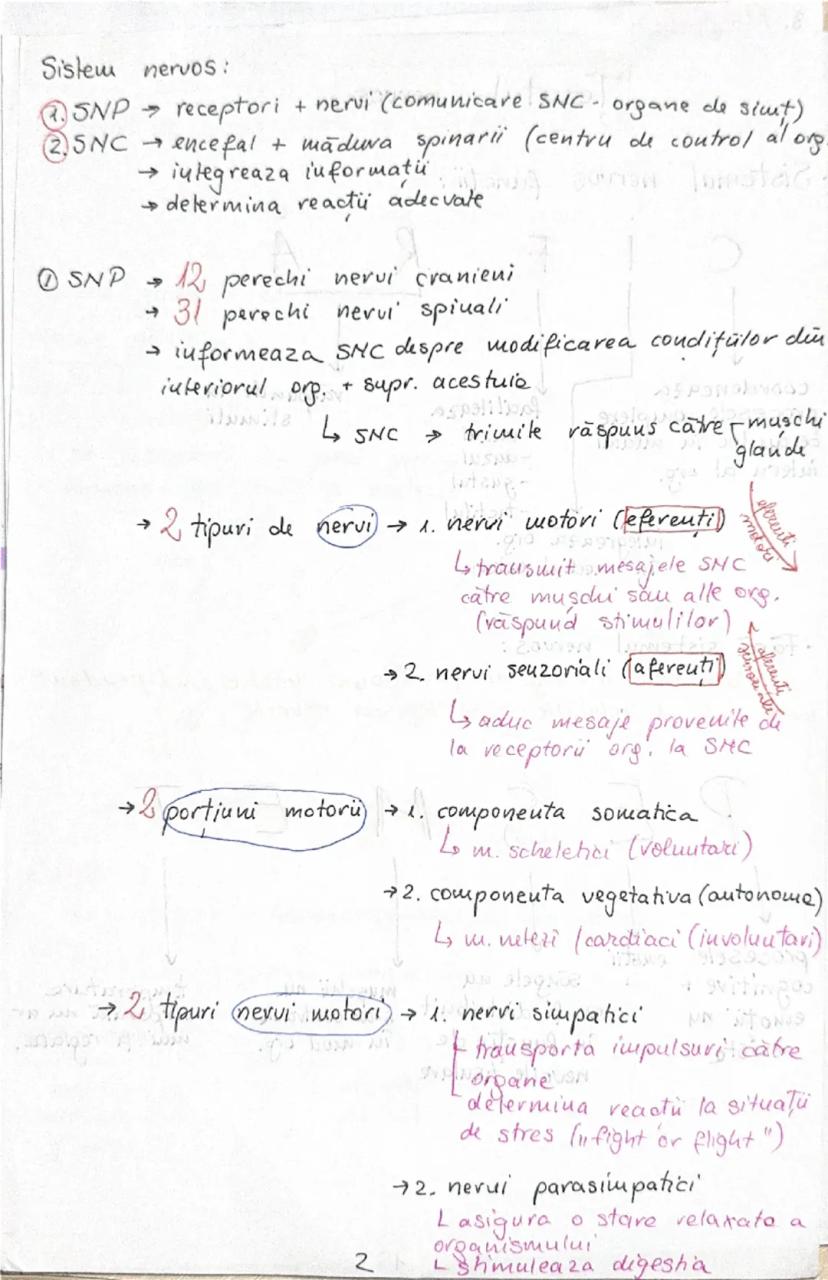 Sistem nervos:
1. SNP → receptori + nervi (comunicare SNC - organe de simț)
2. SNC → encefal + măduva spinarii (centru de control al org.
→ integreaza informații
→ determina reacții adecvate
① SNP → 12 perechi nervi cranieni
→ 31 perechi nervi spinali
→ informeaza SNC despre modificarea condițiilor din
interiorul org. + supr. acestuia
↳ SNC → trimite răspuns către - muschi
glande
→ 2 tipuri de nervi → 1. nervi motori (eferenți)
eferenti
motori
↳ transmit mesajele SNC
către mușchi sau alte org.
(răspund stimulilor)
→ 2. nervi senzoriali (aferenți)
aferenti
senzoriali
↳ aduc mesaje provenite de
la receptorii org. la SNC
→ 2 porțiuni motorii → 1. componenta somatica
↳ m. scheletici (voluntari)
→ 2. componenta vegetativa (autonoma)
↳ m. netezi / cardiaci (involuntari)
→ 2 tipuri nervi motori → 1. nervi simpatici
transporta impulsuri către
organe
determina reacții la situații
de stres („fight or flight")
→ 2. nervi parasimpatici
asigura o stare relaxata a
organismului
stimuleaza digestia
2